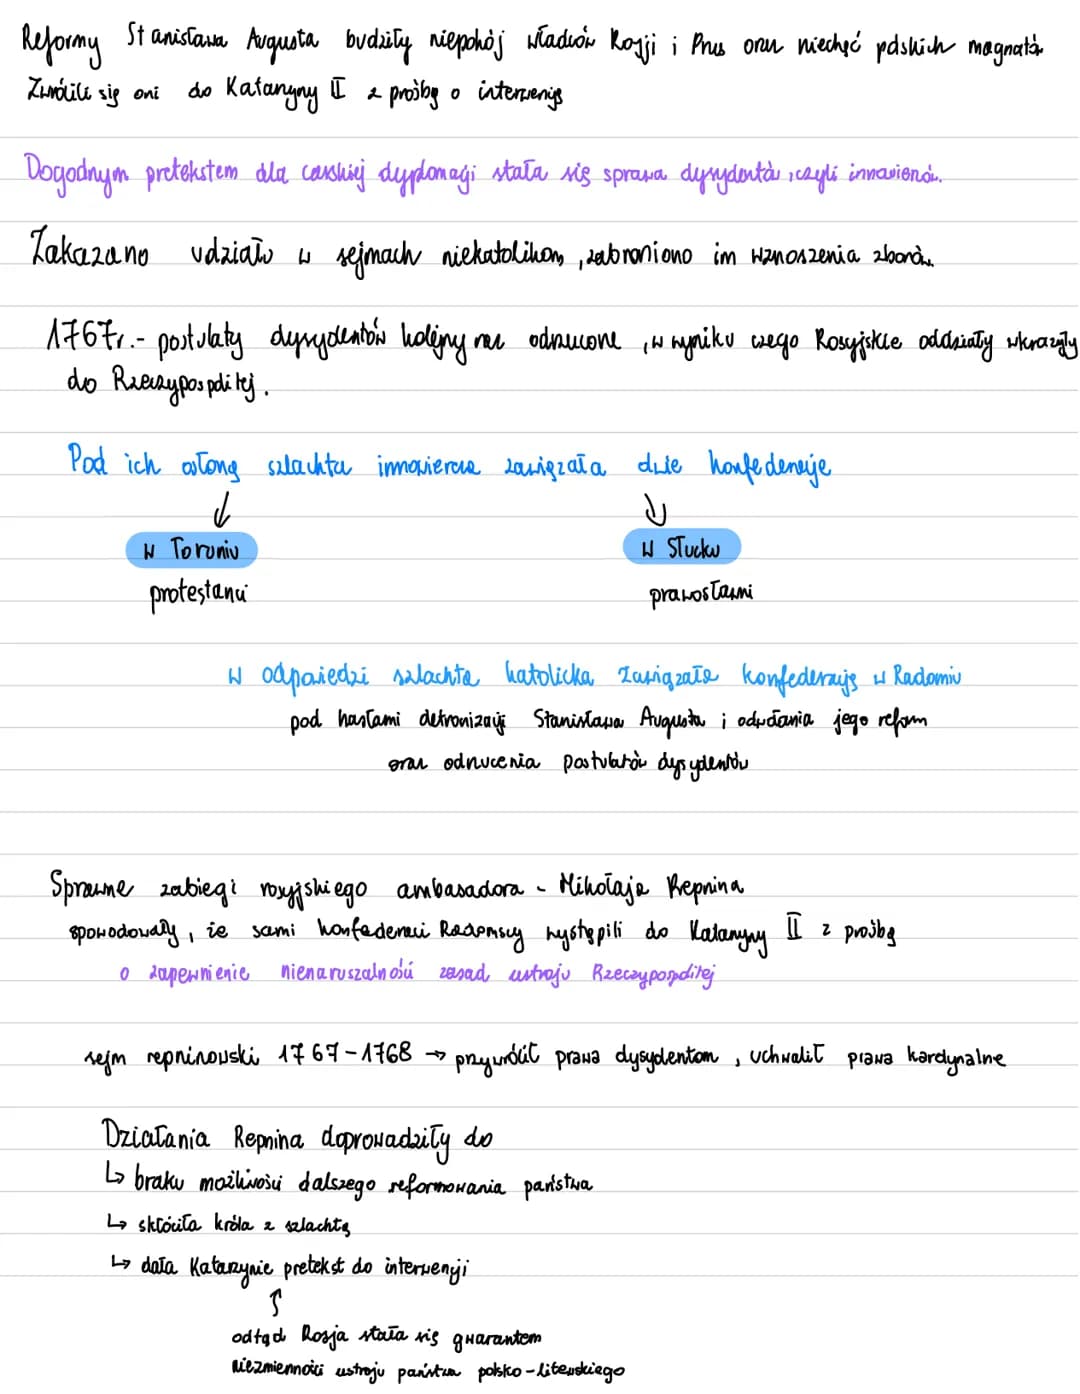 Reformy Stanisława Augusta budziły niepokój władców Rosji i Prus oraz niechęć polskich magnatów
Zwrócili się oni do Katarzyny II z prośbą o interwencję
Dogodnym pretekstem dla carskiej dyplomacji stała się sprawa dysydentów, czyli innowierców.
Zakazano udziału w sejmach niekatolikom, zabroniono im wznoszenia zborów.
1767r.- postulaty dysydentów kolejny raz odrzucone, w wyniku czego Rosyjskie oddziały wkroczyły
do Rzeczypospolitej.
Pod ich osłoną szlachta innowiercza zawiązała dwie konfederacje
↓ ↓
w Toruniu w Słucku
protestanci prawosławni
W odpowiedzi szlachta katolicka zawiązała konfederację w Radomiu
pod hasłami detronizacji Stanisława Augusta i oddalania jego reform
oraz odrzucenia postulatów dysydentów
Sprawne zabiegi rosyjskiego ambasadora - Mikołaja Repnina
spowodowały, że sami konfederaci Radomscy wystąpili do Katarzyny II z prośbą
o zapewnienie nienaruszalności zasad ustroju Rzeczypospolitej
sejm repninowski 1767-1768 → przywrócił prawa dysydentom, uchwalił prawa kardynalne
Działania Repnina doprowadziły do
↳ braku możliwości dalszego reformowania państwa
↳ skłóciła króla z szlachtą
↳ dała Katarzynie pretekst do interwencji
↑
odtąd Rosja stała się gwarantem
niezmienności ustroju państwa polsko-litewskiego